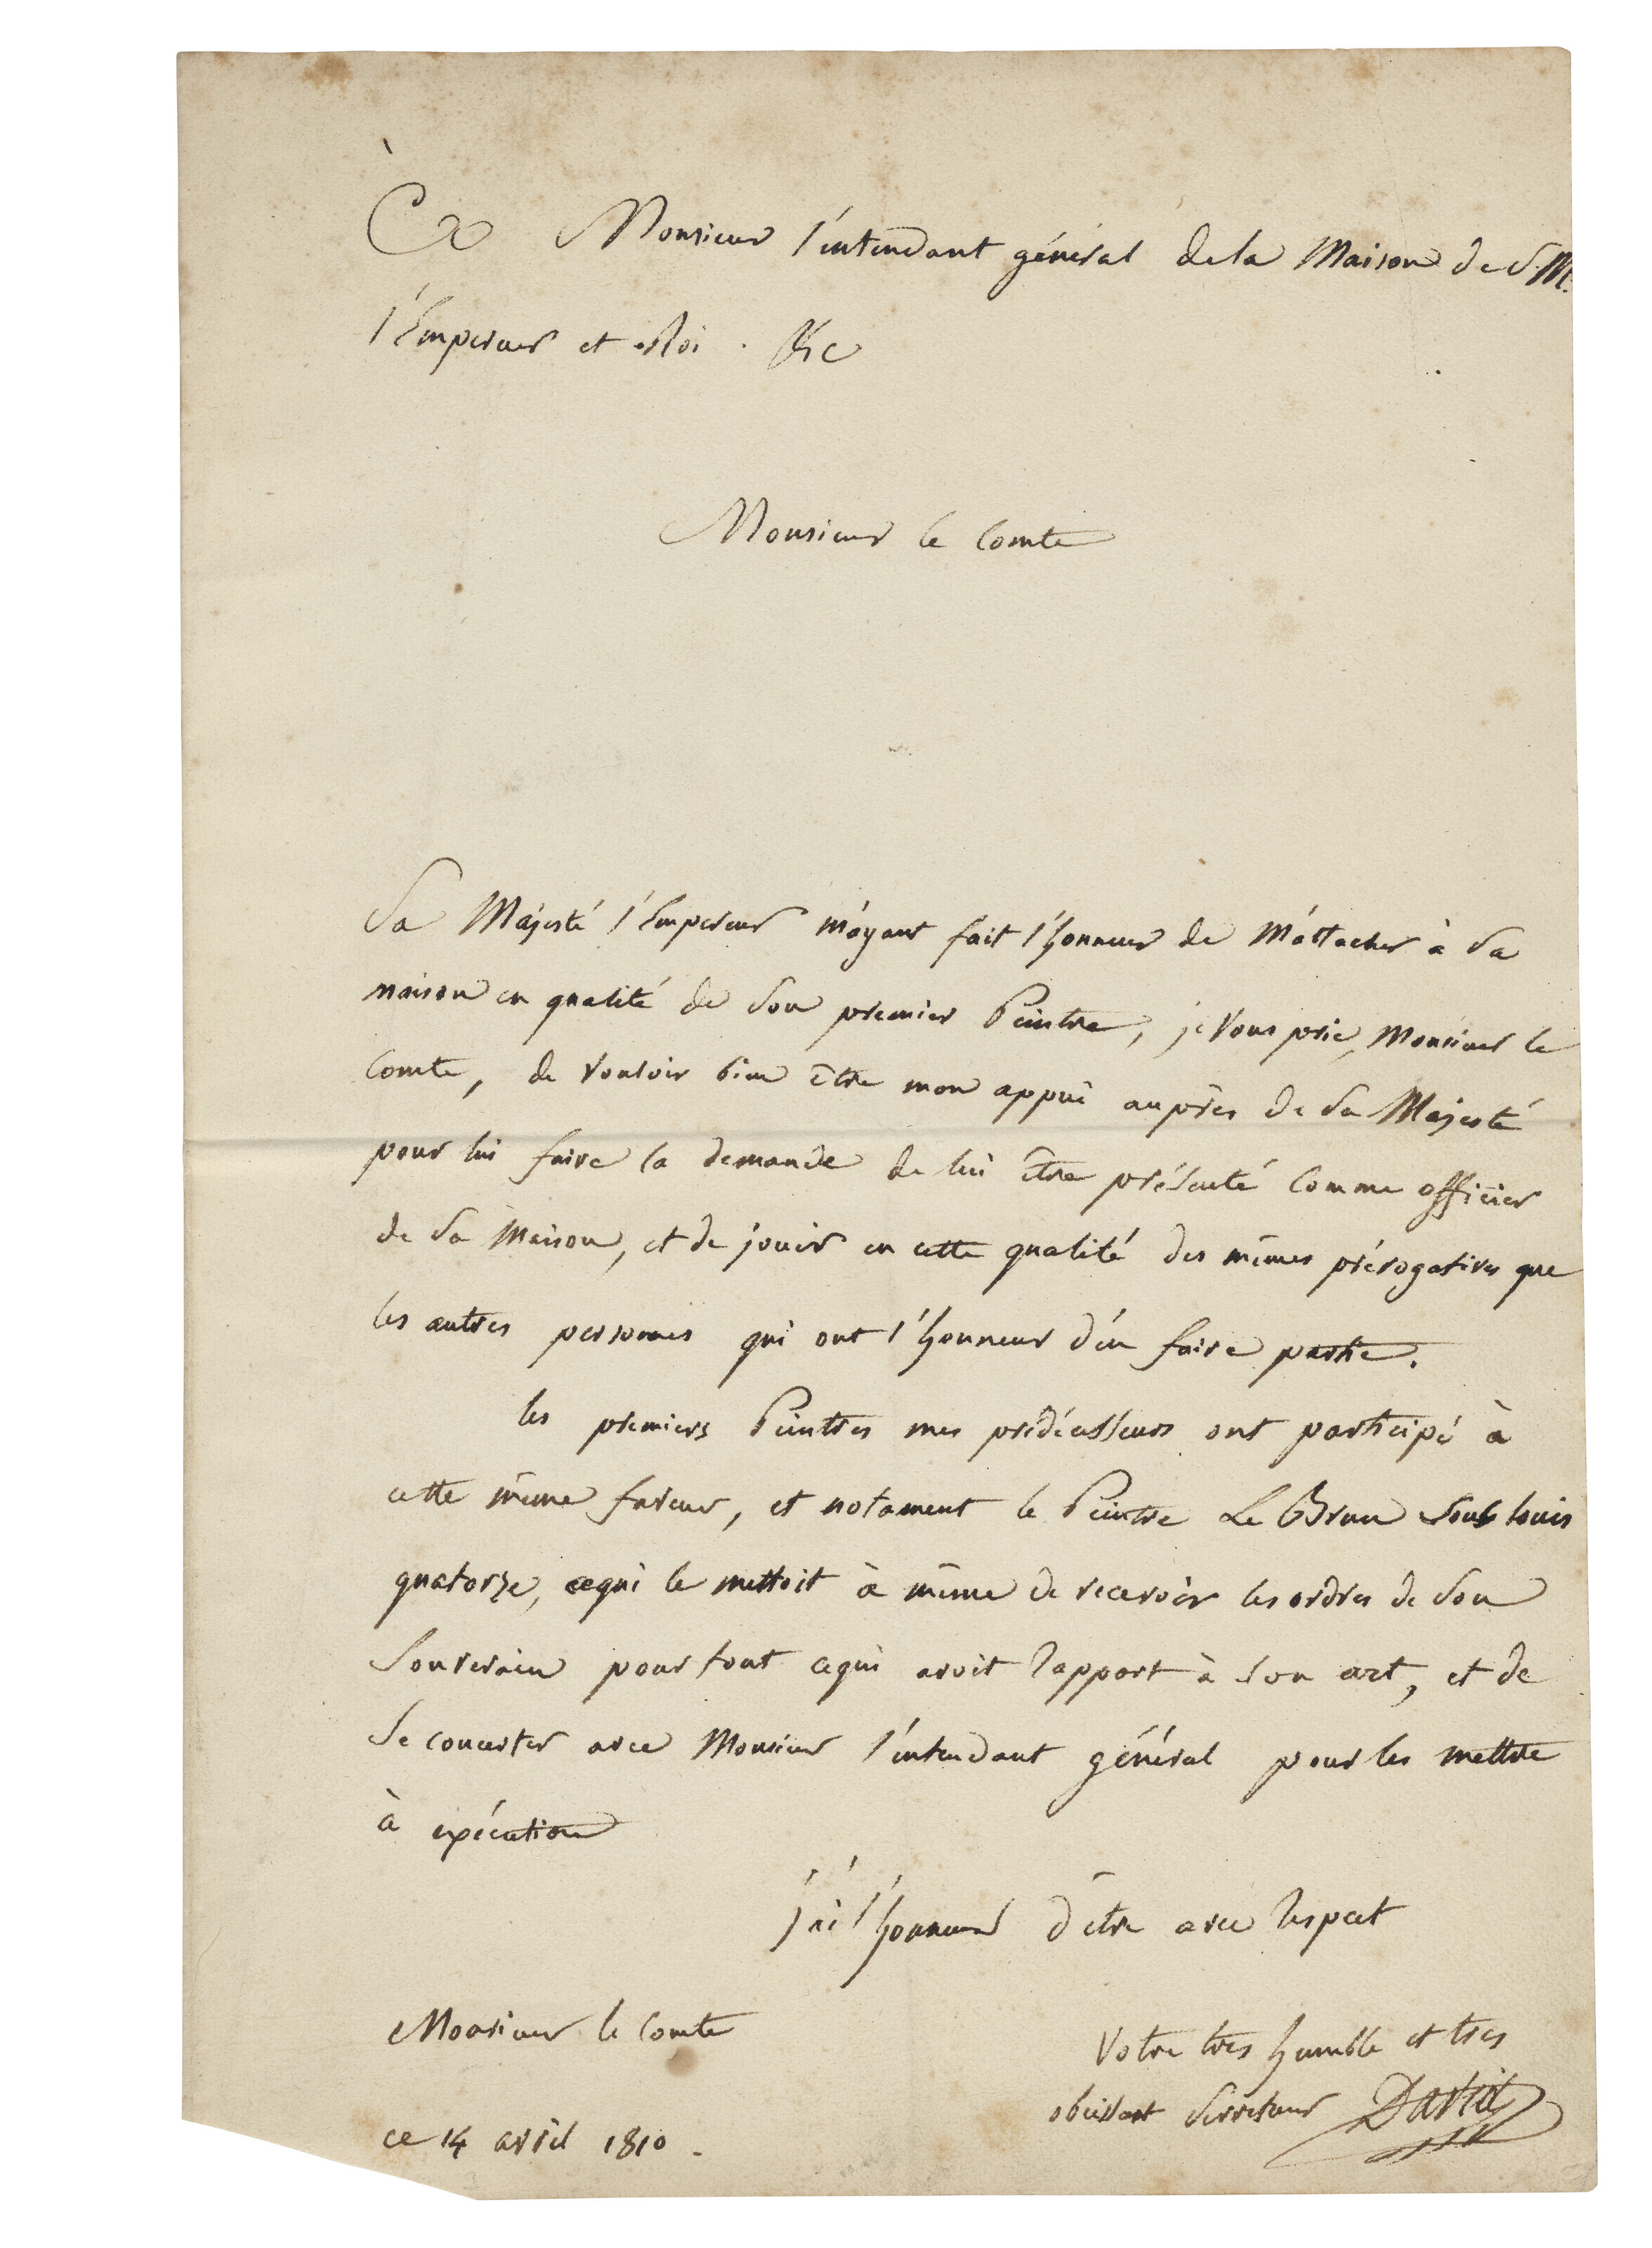 À Monsieur l'intendant général dela Maison de S.M.
l'Empereur et Roi . &c
Monsieur le Comte
Sa Majesté l'Empereur m'ayant fait l'honneur de m'attacher à Sa
maison en qualité de Son premier Peintre, je Vous prie, Monsieur le
Comte, de Vouloir bien être mon appui auprès de Sa Majesté
pour lui faire la demande de lui être présenté Comme officier
de Sa Maison, et de jouir en cette qualité des mêmes prérogatives que
les autres personnes qui ont l'honneur d'en faire partie.
les premiers Peintres mes prédécesseurs ont participé à
cette même faveur, et notament le Peintre Le Brun Sous louis
quatorze, cequi le mettoit à même de recevoir les ordres de Son
Souverain pour tout cequi avoit Rapport à Son art, et de
Se concerter avec Monsieur l'intendant général pour les mettre
à exécution
j'ai l'honneur d'être avec Respect
Monsieur le Comte
Votre tres humble et tres
obeissant Serviteur David
ce 14 avril 1810 .